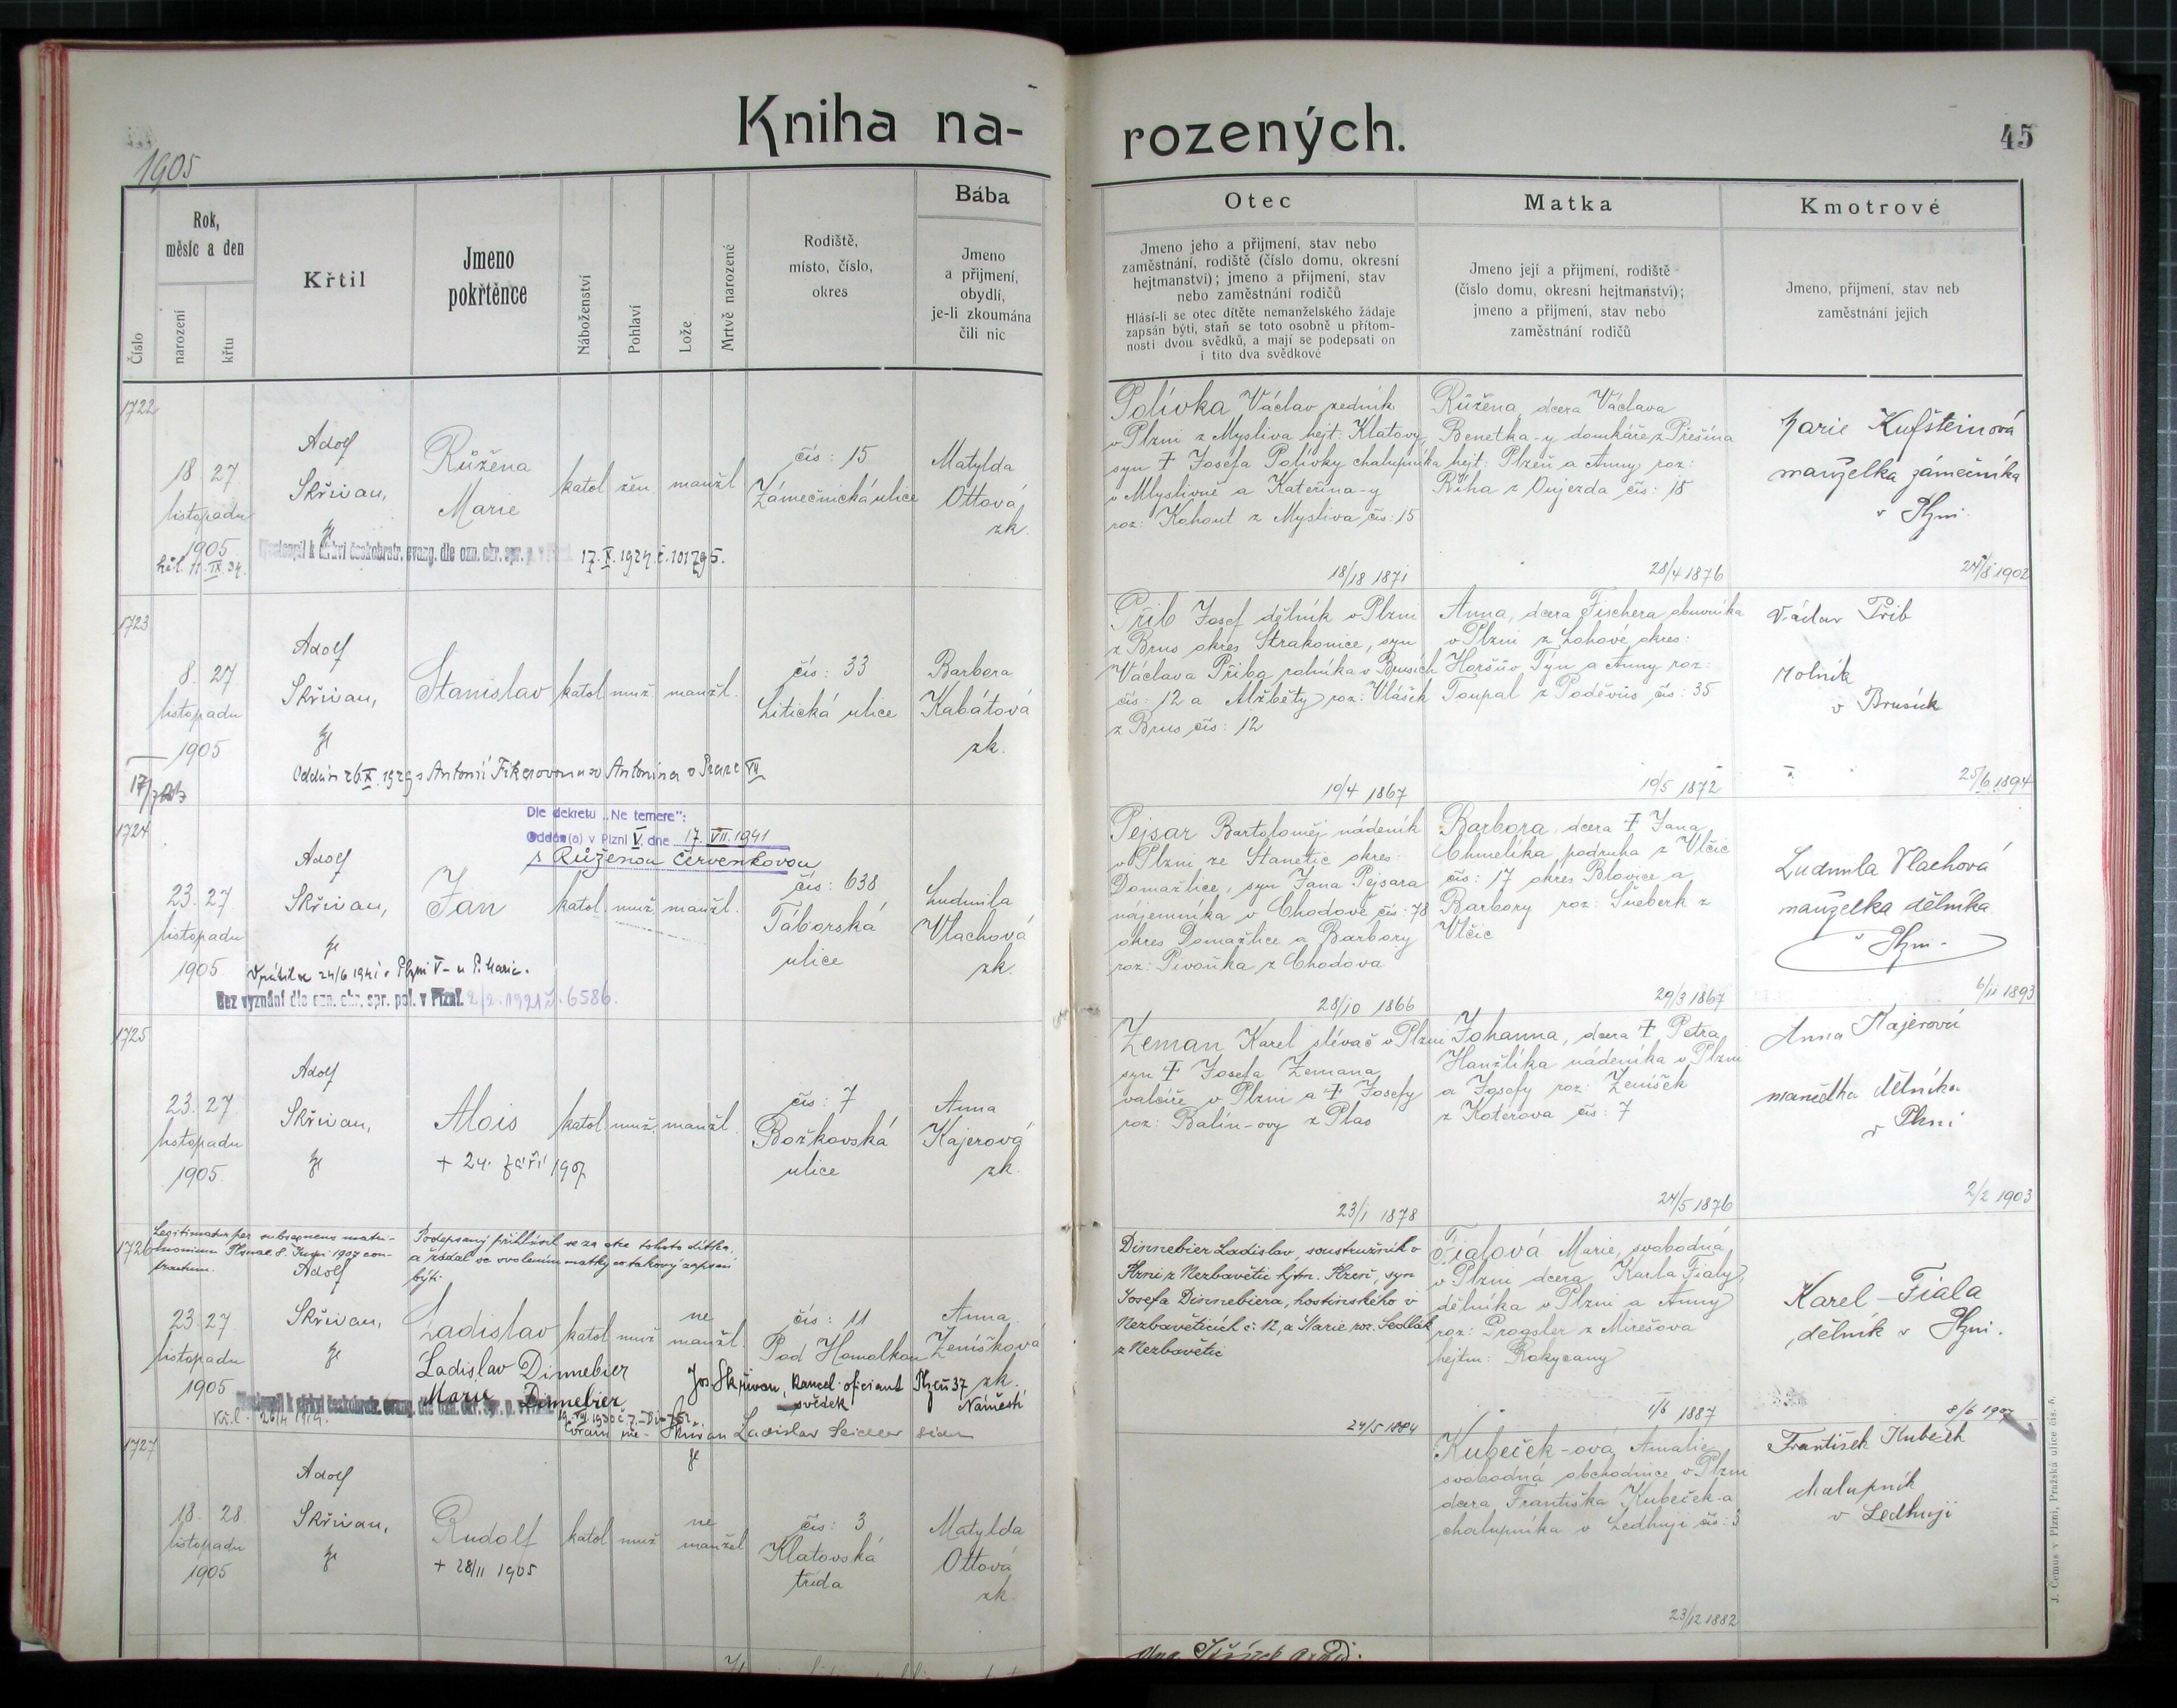 Kniha na-
rozených.
45
1905
Číslo
Rok,
měsíc a den
narození
křtu
Křtil
Jmeno
pokřtěnce
Náboženství
Pohlaví
Lože
Mrtvě narozené
Rodiště,
místo, číslo,
okres
Bába
Jmeno
a přijmení,
obydlí,
je-li zkoumána
čili nic
Otec
Jmeno jeho a přijmení, stav nebo
zaměstnání, rodiště (číslo domu, okresní
hejtmanství); jmeno a přijmení, stav
nebo zaměstnání rodičů
Hlásí-li se otec dítěte nemanželského žádaje
zapsán býti, staň se toto osobně u přítom-
nosti dvou svědků, a mají se podepsati on
i tito dva svědkové
Matka
Jmeno její a přijmení, rodiště
(číslo domu, okresní hejtmanství);
jmeno a přijmení, stav nebo
zaměstnání rodičů
Kmotrové
Jmeno, přijmení, stav neb
zaměstnání jejich
1722
18. 27.
listopadu
1905
Adolf
Skřivan,
Růžena
Marie
katol
žen
manžl.
čís: 15
Zámečnická ulice
Matylda
Ottová
zk.
k církvi českobratr. evang. dle ozn. okr. spr. p. v 17. X. 1924. č. 101795.
Polívka Václav zedník
v Plzni z Mysliva hejt: Klatovy
syn † Josefa Polívky chalupníka
v Myslivně a Kateřina-y
roz: Kohout z Mysliva čís: 15
18/18 1871
Růžena, dcera Václava
Benetka-y domkáře z Přešína
hejt: Plzeň a Anny roz:
Říha z Dujezda čís: 18
28/4 1876
Marie Kufsteinová
manželka zámečníka
v Plzni.
24/8 1902
1723
8. 27.
listopadu
1905
Adolf
Skřivan,
Stanislav
katol
muž
manžl.
čís: 33
Litická ulice
Barbora
Kabátová
zk.
Oddán 26. X. 1929 s Antonií Fikarovou u sv Antonína v Praze VII
Přib Josef dělník v Plzni
z Brus okres Strakonice, syn
Václava Přiba rolníka v Brusích
čís: 12 a Alžběty roz: Vlášek
z Brus čís: 12
10/4 1867
Anna, dcera Fischera obuvníka
v Plzni z Lohové okres:
Horšův Týn a Anny roz:
Toupal z Poděvůs čís: 35
10/5 1872
Václav Přib
rolník
v Brusích
25/6 1894
1724
Dle dekretu „Ne temere":
Oddán(a) v Plzni V, dne 17. VII. 1941
s Růženou Červenkovou
23. 27.
listopadu
1905
Adolf
Skřivan,
Jan
katol.
muž.
manžl.
čís: 638
Táborská
ulice
Ludmila
Vlachová
zk.
Vrátil se 24/6 1941 v Plzni V- u P. Marie.
Bez vyznání dle ozn. okr. spr. pol. v Plzni. 2/2. 1921 č. 6586.
Pejsar Bartoloměj nádeník
v Plzni ze Stanětic okres:
Domažlice, syn Jana Pejsara
nájemníka v Chodově čís: 78
okres Domažlice a Barbory
roz: Pivoňka z Chodova
28/10 1866
Barbora, dcera † Jana
Chmelíka podruha z Vlčic
čís: 17 okres Blovice a
Barbory roz: Šneberk z
Vlčic
29/3 1867
Ludmila Vlachová
manželka dělníka
v Plzni
6/11 1893
1725
23. 27.
listopadu
1905
Adolf
Skřivan,
Alois
+ 24. září 1907
katol.
muž.
manžl.
čís: 7
Božkovská
ulice
Anna
Kajerová
zk.
Zeman Karel slévač v Plzni
syn † Josefa Zemana
valcíře v Plzni a † Josefy
roz: Balín-ovy z Plas
23/1 1878
Johanna, dcera † Petra
Hanžlíka nádeníka v Plzni
a Josefy roz: Zeníšek
z Koterova čís: 7
24/5 1876
Anna Kajerová
manželka dělníka
v Plzni
2/2 1903
1726
Legitimatus per subsequens matri-
monium Plsnae 8. Junii 1907 con-
tractum.
Podepsaný přihlásil se za otce tohoto dítka,
a žádal se svolením matky co takový zapsán
býti.
23. 27.
listopadu
1905
Adolf
Skřivan,
Ladislav
katol
muž
ne
manžl.
čís: 11
Pod Homolkou
Anna
Zeníšková
zk.
Ladislav Dinnebier
Marie Dinnebier
Jos. Skřivan, kancel. oficiant Plzeň 37
svědek Náměstí
Dinnebier Ladislav, soustružník v
Plzni z Nezbavětic hjtm. Plzeň, syn
Josefa Dinnebiera, hostinského v
Nezbavěticích č: 12, a Marie roz. Sedlák
z Nezbavětic
24/5 1884
Fialová Marie, svobodná
v Plzni dcera Karla Fialy,
dělníka v Plzni a Anny
roz: Progsler z Mirešova
hejtm: Rokycany
1/6 1887
Karel Fiala
dělník v Plzni.
8/6 1907
1727
18. 28.
listopadu
1905
Adolf
Skřivan,
Rudolf
+ 28/11 1905
katol
muž
ne
manžel
čís: 3
Klatovská
třída
Matylda
Ottová
zk.
Kubeček-ová Amalie
svobodná obchodnice v Plzni
dcera Františka Kubeček-a
chalupníka v Ledhuji čís: 3
23/12 1882
František Kubeček
chalupník
v Ledhuji
J. Čemus v Plzni, Pražská ulice čís. 5.